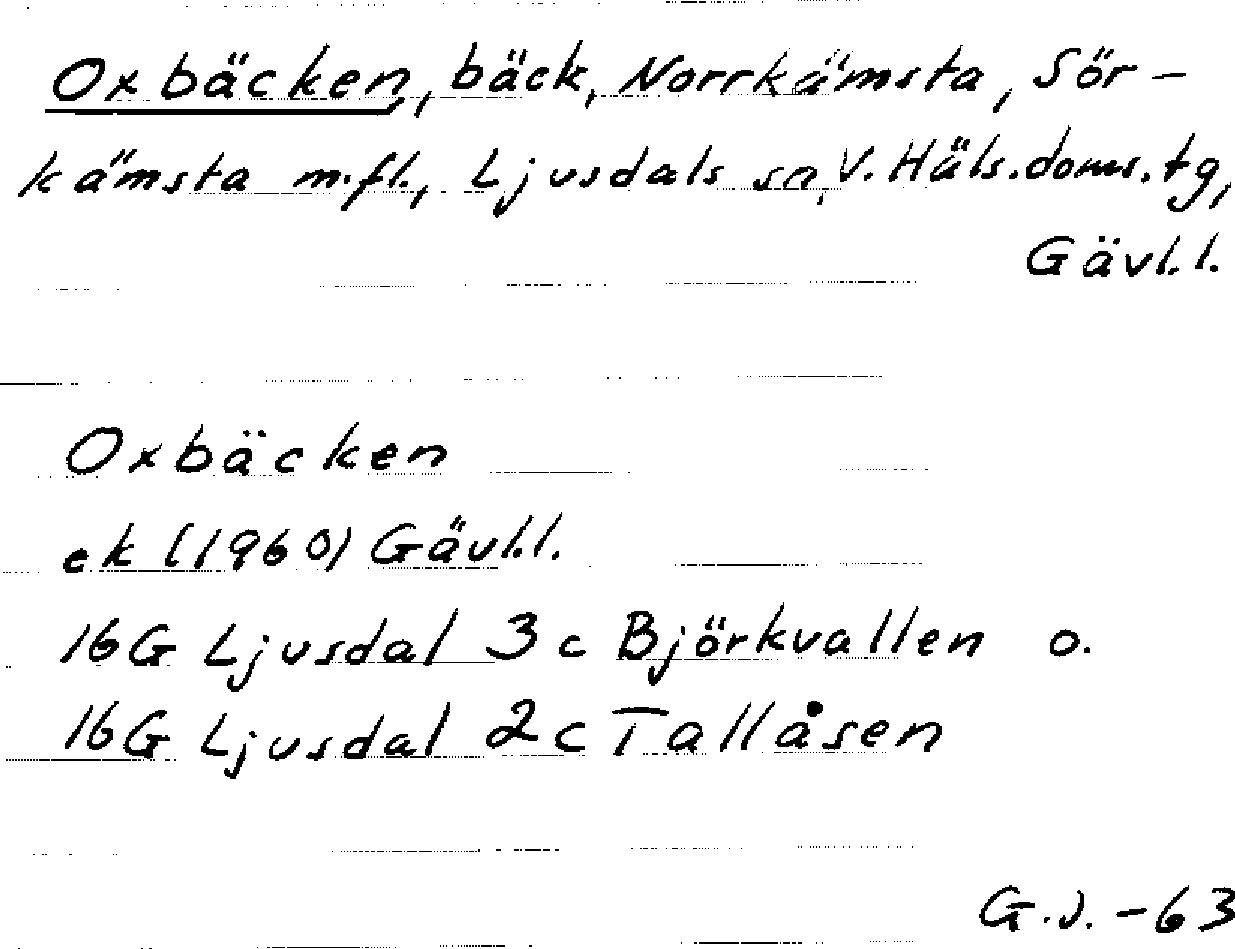 Oxbäcken, bäck, Norrkämsta, Sör-
kämsta m.fl., Ljusdals sn, V. Häls. doms. tg,
Gävl. l.
Oxbäcken
ek (1960) Gävl. l.
16G Ljusdal 3c Björkvallen o.
16G Ljusdal 2c Tallåsen
G.J. -63